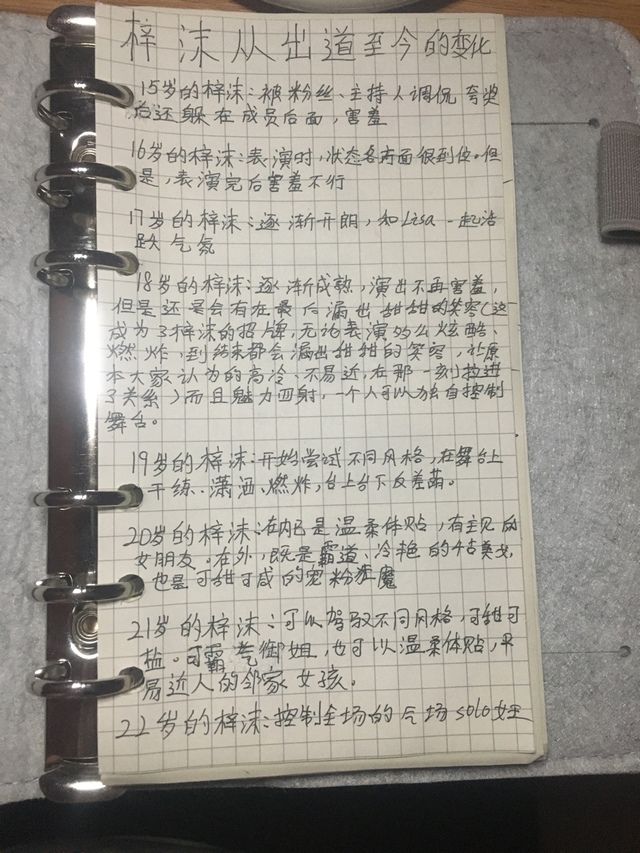 梓沫从出道至今的变化
15岁的梓沫:被粉丝、主持人调侃夸奖
后还躲在成员后面,害羞
16岁的梓沫:表演时,状态各方面很到位。但
是,表演完后害羞不行
17岁的梓沫:逐渐开朗,和Lisa一起活
跃气氛
18岁的梓沫:逐渐成熟,演出不再害羞,
但是还是会有在最后漏出甜甜的笑容(这
成为了梓沫的招牌,无论表演多么炫酷、
燃炸,到结束都会漏出甜甜的笑容,让原
本大家认为的高冷、不易近,在那一刻拉进
了关系)而且魅力四射,一个人可以独自控制
舞台。
19岁的梓沫:开始尝试不同风格,在舞台上
干练、潇洒、燃炸,台上台下反差萌。
20岁的梓沫:在内已是温柔体贴,有主见的
女朋友。在外,既是霸道、冷艳的
也是可甜可咸的宠粉狂魔
21岁的梓沫:可以驾驭不同风格,可甜可
盐。可霸气御姐,也可以温柔体贴,平
易近人的邻家女孩。
22岁的梓沫:控制全场的气场solo女王